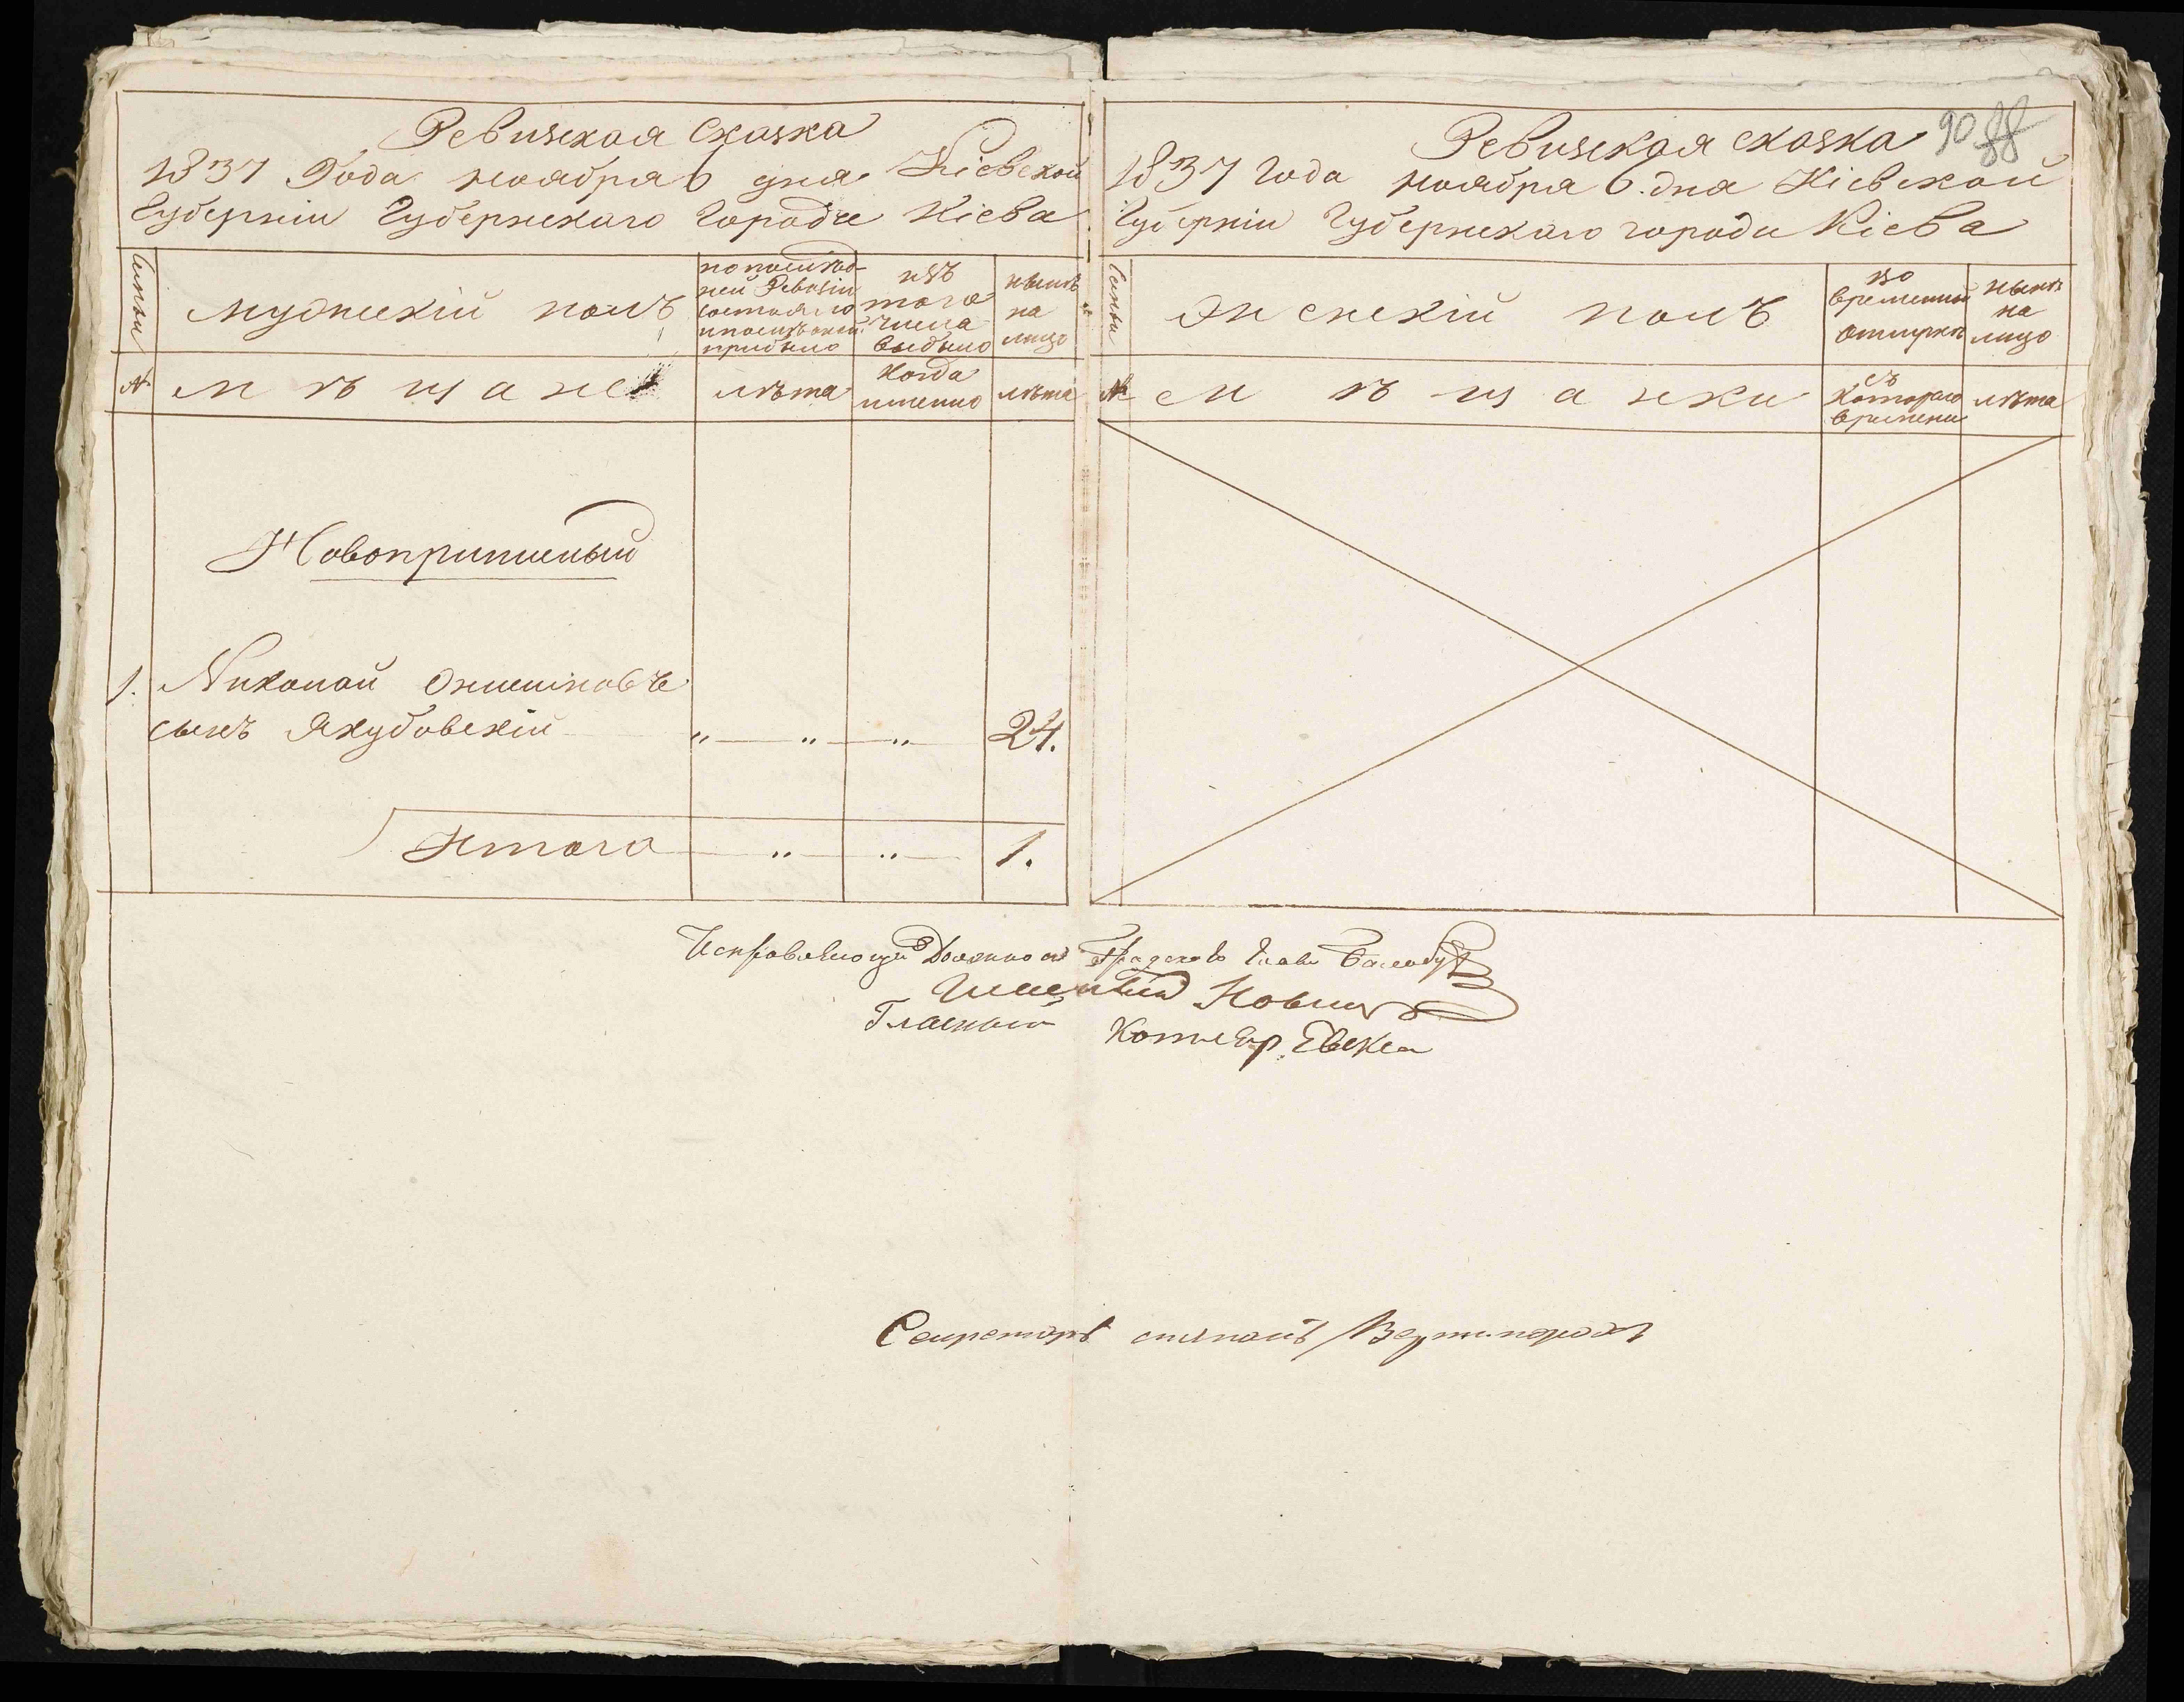 Ревизская сказка
1837 Года ноября 6 дня Кіевской
Губерніи Губернскаго города Кіева
Семьи
мужескій полъ
по послѣд-
ней Ревизіи
состояло
и послѣ оной
прибыло
изъ
того
числа
выбыло
нынѣ
на
лицо
№
мѣщане
лѣта
когда
именно
лѣта
Новоприписный
1. Николай
сынъ Якубовскій „ — „ — „ 24.
Итого „ „ 1.
90 88
Ревизская сказка
1837 года ноября 6. дня Кіевской
Губерніи Губернскаго города Кіева
Семьи
Женскій полъ
во
временной
отлучкѣ
нынѣ
на
лицо
№
мѣщанки
съ
котораго
времени
лѣта
Исправляющий Должность Градскаго Главы
Гласный
Секретарь